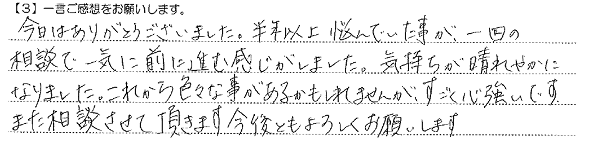 【3】一言ご感想をお願いします。
今日はありがとうございました。半年以上悩んでいた事が、一回の
相談で一気に前に進む感じがしました。気持ちが晴れやかに
なりました。これから色々な事があるかもしれませんが、すごく心強いです
また相談させて頂きます今後ともよろしくお願いします